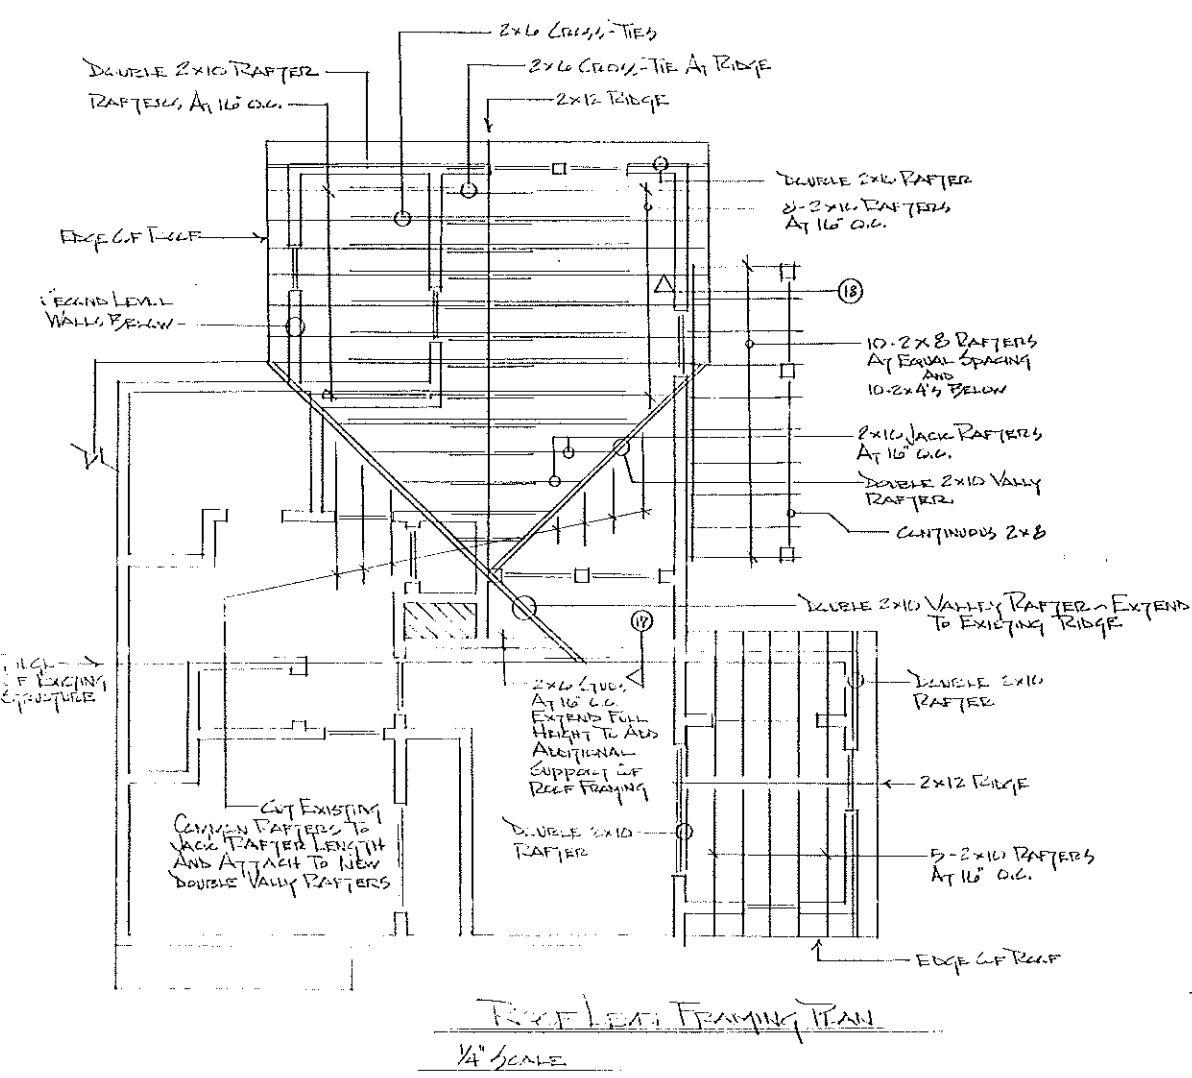 2x6 CROSS-TIES
DOUBLE 2x10 RAFTER
2x6 CROSS-TIE AT RIDGE
RAFTERS AT 16" O.C.
2x12 RIDGE
DOUBLE 2x10 RAFTER
8-2x10 RAFTERS
AT 16" O.C.
EDGE OF ROOF
SECOND LEVEL
WALLS BELOW
18
10-2x8 RAFTERS
AT EQUAL SPACING
AND
10-2x4's BELOW
2x10 JACK RAFTERS
AT 16" O.C.
DOUBLE 2x10 VALLY
RAFTER
CONTINUOUS 2x8
DOUBLE 2x10 VALLEY RAFTER - EXTEND
TO EXISTING RIDGE
OF EXISTING
STRUCTURE
2x6 STUDS
AT 16" O.C.
EXTEND FULL
HEIGHT TO ADD
ADDITIONAL
SUPPORT OF
ROOF FRAMING
DOUBLE 2x10
RAFTER
2x12 RIDGE
CUT EXISTING
COMMON RAFTERS TO
JACK RAFTER LENGTH
AND ATTACH TO NEW
DOUBLE VALLY RAFTERS
DOUBLE 2x10
RAFTER
5-2x10 RAFTERS
AT 16" O.C.
EDGE OF ROOF
ROOF LEVEL FRAMING PLAN
1/4" SCALE